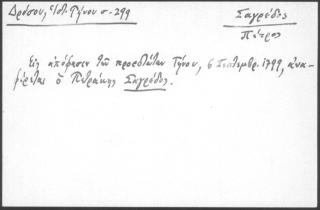 Δρόσου, Ἱστ. Τήνου σ. 299
Σαγρέδος
Πέτρος
Εἰς ἀπόφασιν τῶν προεστώτων Τήνου, 6 Σεπτεμβρ. 1799, ἀνα-
φέρεται ὁ Πετράκης Σαγρέδος.